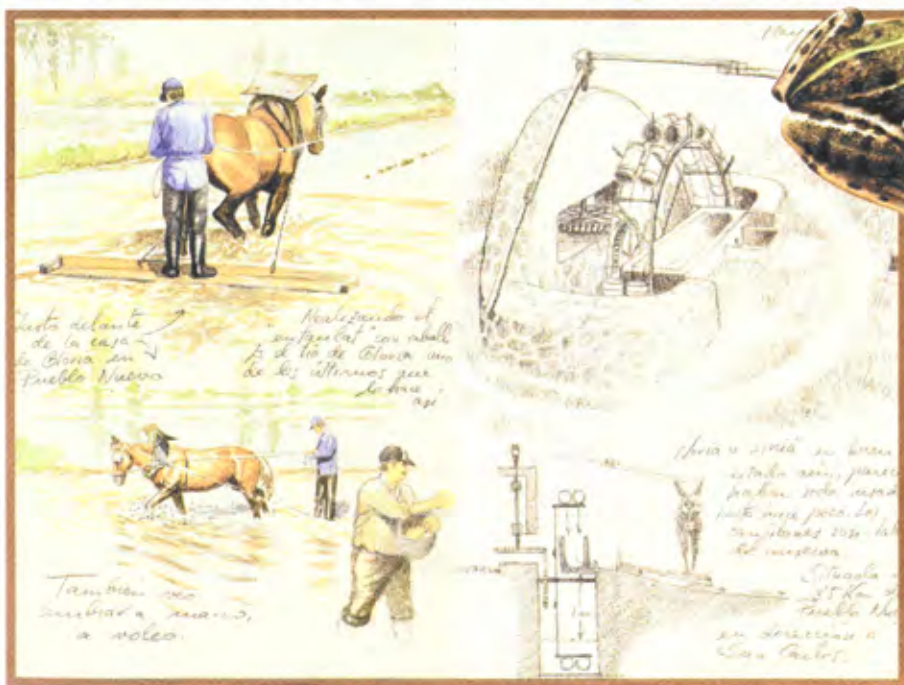 Justo delante
de la casa
de Gloria en
Pueblo Nuevo
Realizando el
"entaulat" con caball
Es el tio de Gloria uno
de los últimos que
lo hace
así
También veo
sembrar a mano,
a voleo.
Noria o siniá en buen
estado aún, parece
haber sido usada
hace muy poco. Los
cangilones son
de madera
Situada
Km
Pueblo Nu
en dirección a
San Carlos.